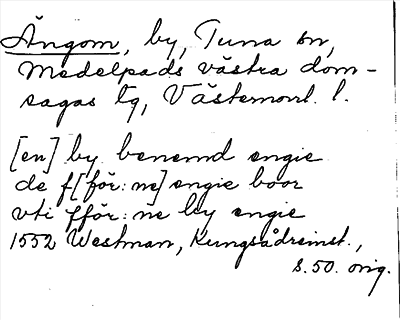 Ängom, by, Tuna sn,
Medelpads västra dom-
sagas tg, Västernorrl. l.
[en] by benemd engie
de f[för: ne] engie boor
vti fför: ne by engie
1552 Westman, Kungsådreinst.,
s. 50. orig.